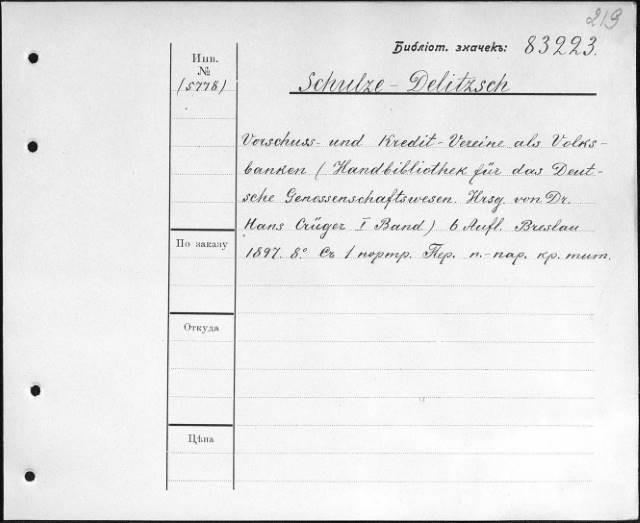 219
Библіот. значекъ: 83223.
Инв.
№
(5778)
Schulze-Delitzsch
Vorschuss- und Kredit-Vereine als Volks-
banken (Handbibliothek für das Deut-
sche Genossenschaftswesen. Hrsg. von Dr.
Hans Crüger I Band) 6 Aufl. Breslau
1897. 8° Съ 1 портр. Пер. п.-пар. кр. тит.
По заказу
Откуда
Цѣна